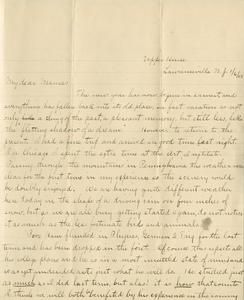 Upper House
Lawrenceville N.J.
My dear Mamma:
The new year has now begun in earnest and
everything has fallen back into its old place, on past vacation as not
only a thing of the past, a pleasant memory, but still less, like
the fleeting shadow of a dream. However to return to the
present. I had a fine trip and arrived on good time last night.
In Chicago I spent the extra time at the Art Institute.
Passing through the mountains in Pennsylvania the weather was
clear for the first time in my experience so the scenery could
be doubly enjoyed. We are having quite different weather
here today in the shape of a driving rain our four inches of
snow, but as we are all busy getting started again, do not notice
it as much as the less intimate birds and animals.
Poor Sam flunked in Physics, German & Eng. for the last
term and has been dropped to the first. Of course this upset all
his college plans and he is in a most unsettled state of mind and
is as yet undecided as to just what he will do. He studied just
as much as I did last term, but alas! it is how that counts.
I think we will both benefited by his experience in the coming